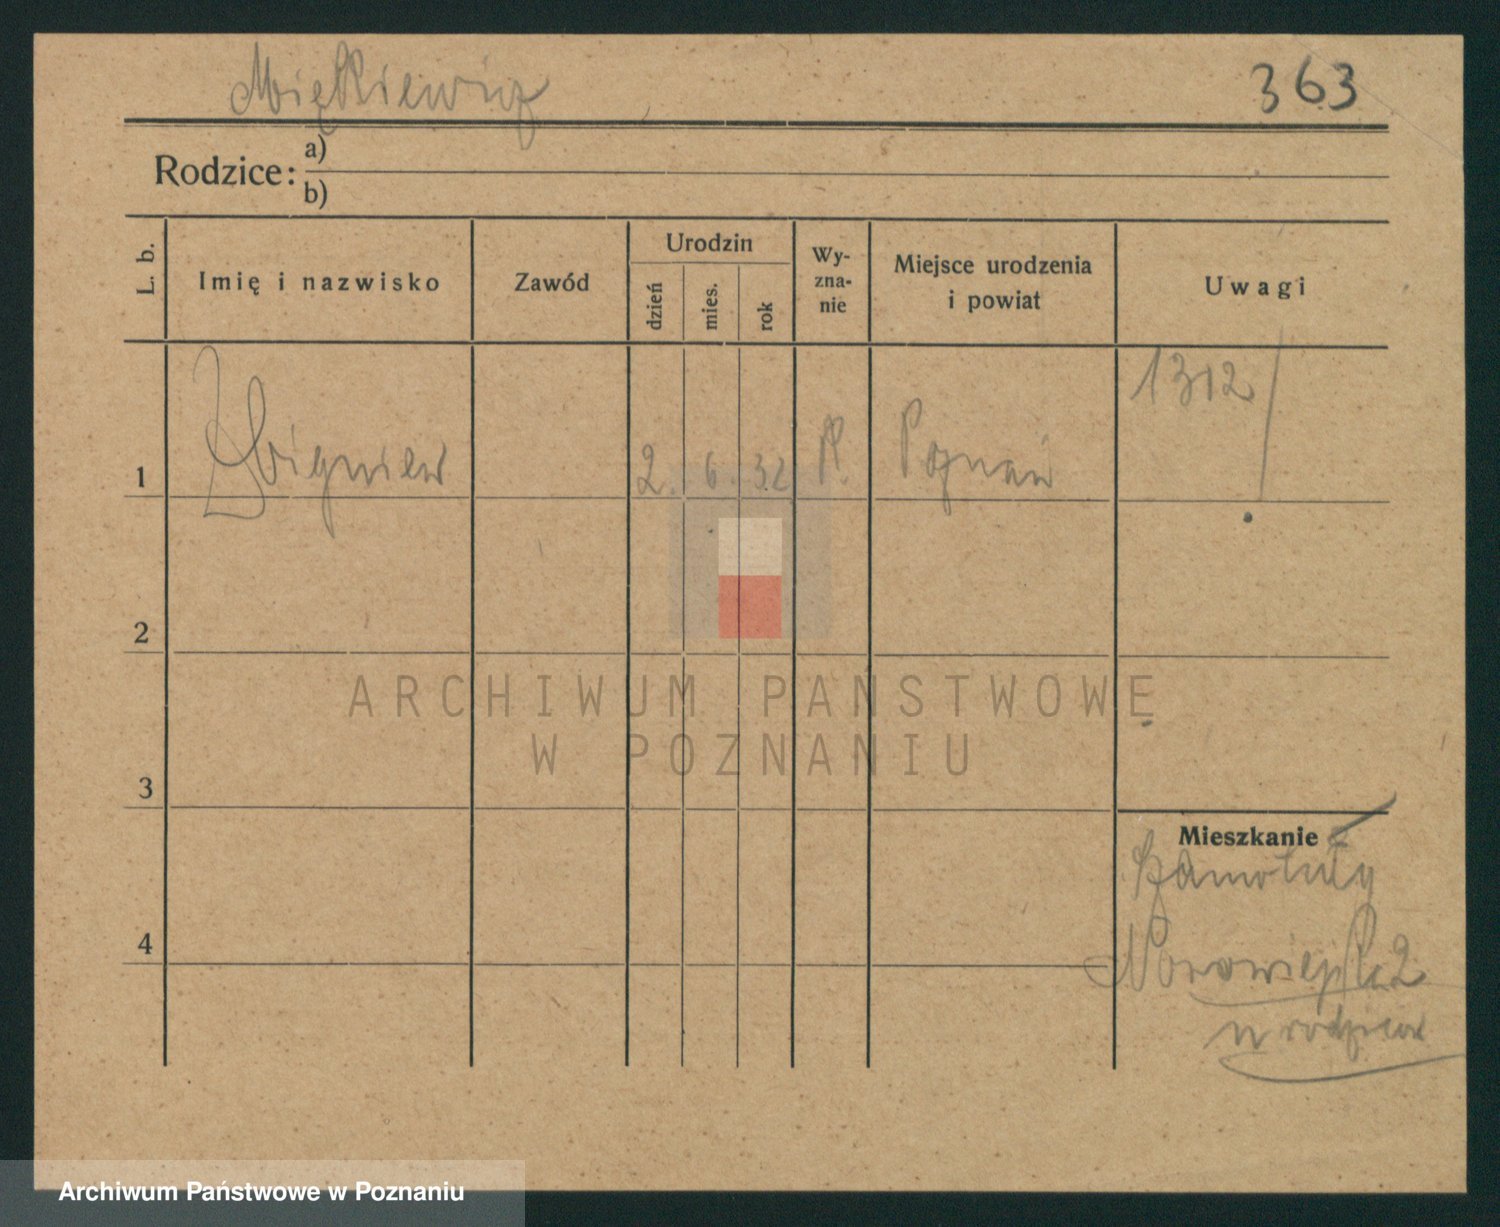 Miętkiewicz 363
Rodzice: a)
b)
L. b. Imię i nazwisko Zawód Urodzin dzień mies. rok Wy-zna-nie Miejsce urodzenia i powiat Uwagi
1312
1 Zbigniew 2. 6. 32 R. Poznań
2
3
Mieszkanie
Szamotuły
4
Nowowiejska 2
u rodziców
ARCHIWUM PAŃSTWOWE
W POZNANIU
Archiwum Państwowe w Poznaniu